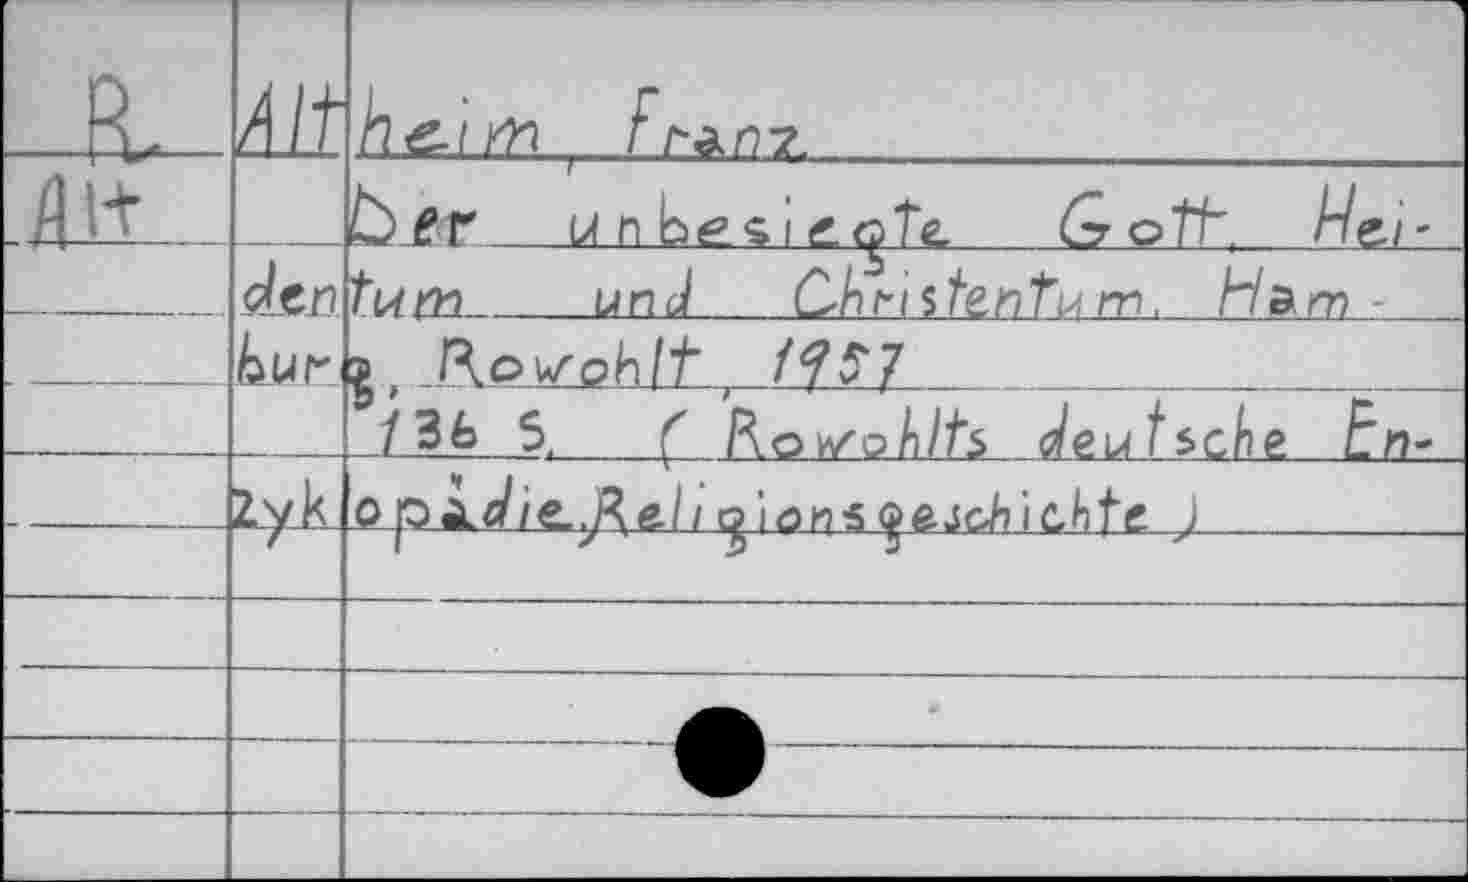 R. Altheim, Franz
Alt Der unbesiegte Gott. Hei-
dentum und Christentum. Ham-
burg, Rowohlt, 1957
136 S. (Rowohlts deutsche En-
zyklopädie, Religionsgeschichte)